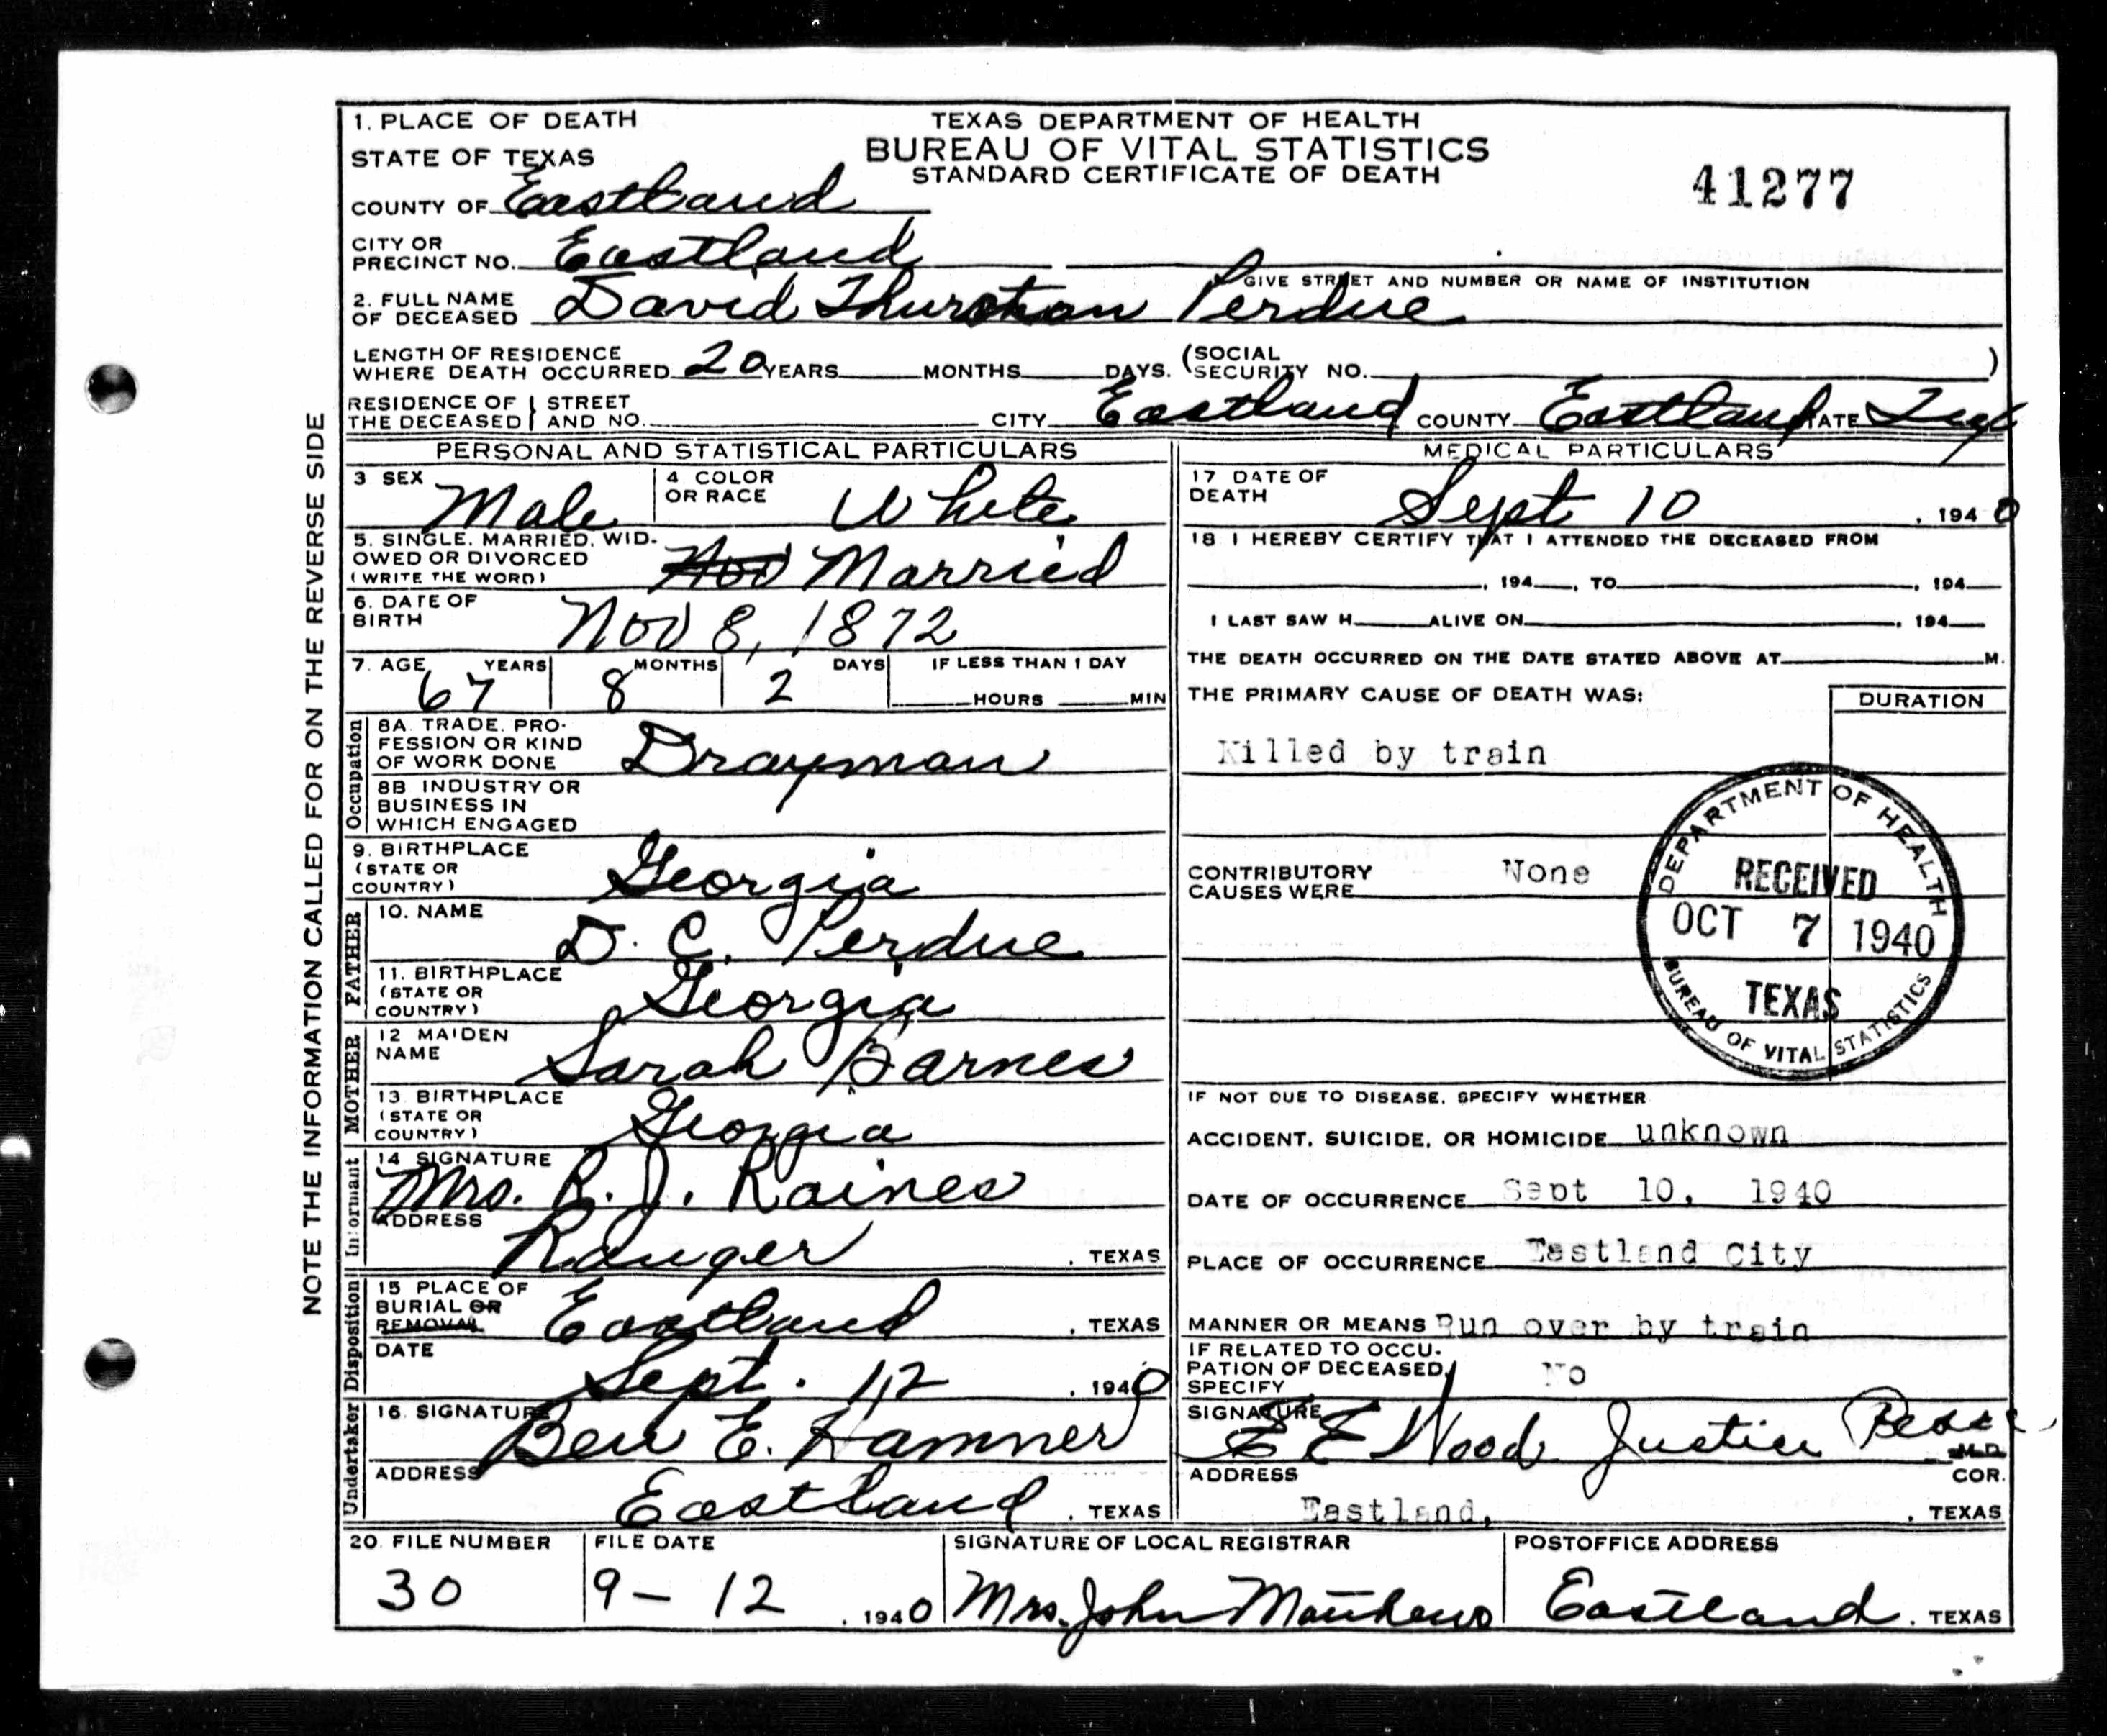 1. PLACE OF DEATH
TEXAS DEPARTMENT OF HEALTH
BUREAU OF VITAL STATISTICS
STANDARD CERTIFICATE OF DEATH
41277
STATE OF TEXAS
COUNTY OF Eastland
CITY OR PRECINCT NO. Eastland
GIVE STREET AND NUMBER OR NAME OF INSTITUTION
2. FULL NAME OF DECEASED David Thurston Perdue
LENGTH OF RESIDENCE WHERE DEATH OCCURRED 20 YEARS MONTHS DAYS. (SOCIAL SECURITY NO. )
RESIDENCE OF THE DECEASED STREET AND NO. CITY Eastland COUNTY Eastland STATE Tex
NOTE THE INFORMATION CALLED FOR ON THE REVERSE SIDE
PERSONAL AND STATISTICAL PARTICULARS
3 SEX Male
4 COLOR OR RACE White
5. SINGLE, MARRIED, WIDOWED OR DIVORCED (WRITE THE WORD) Nov Married
6. DATE OF BIRTH Nov 8, 1872
7. AGE YEARS MONTHS DAYS IF LESS THAN 1 DAY
67 8 2 HOURS MIN
Occupation
8A. TRADE, PROFESSION OR KIND OF WORK DONE Drayman
8B INDUSTRY OR BUSINESS IN WHICH ENGAGED
9. BIRTHPLACE (STATE OR COUNTRY) Georgia
FATHER
10. NAME D. C. Perdue
11. BIRTHPLACE (STATE OR COUNTRY) Georgia
MOTHER
12 MAIDEN NAME Sarah Barnes
13. BIRTHPLACE (STATE OR COUNTRY) Georgia
Informant
14 SIGNATURE Mrs. R. J. Raines
ADDRESS Ranger, TEXAS
Disposition
15 PLACE OF BURIAL OR REMOVAL Eastland, TEXAS
DATE Sept. 12, 1940
Undertaker
16. SIGNATURE Ben E. Hamner
ADDRESS Eastland, TEXAS
MEDICAL PARTICULARS
17 DATE OF DEATH Sept 10, 1940
18 I HEREBY CERTIFY THAT I ATTENDED THE DECEASED FROM
, 194 , TO , 194
I LAST SAW H ALIVE ON , 194
THE DEATH OCCURRED ON THE DATE STATED ABOVE AT M.
THE PRIMARY CAUSE OF DEATH WAS: DURATION
Killed by train
CONTRIBUTORY CAUSES WERE None
DEPARTMENT OF HEALTH
RECEIVED
OCT 7 1940
TEXAS
BUREAU OF VITAL STATISTICS
IF NOT DUE TO DISEASE, SPECIFY WHETHER
ACCIDENT, SUICIDE, OR HOMICIDE unknown
DATE OF OCCURRENCE Sept 10, 1940
PLACE OF OCCURRENCE Eastland City
MANNER OR MEANS Run over by train
IF RELATED TO OCCUPATION OF DECEASED, SPECIFY No
SIGNATURE E E Wood Justice Peace M.D.
COR.
ADDRESS
Eastland, , TEXAS
20. FILE NUMBER FILE DATE SIGNATURE OF LOCAL REGISTRAR POSTOFFICE ADDRESS
30 9-12, 1940 Mrs. John Matthews Eastland, TEXAS